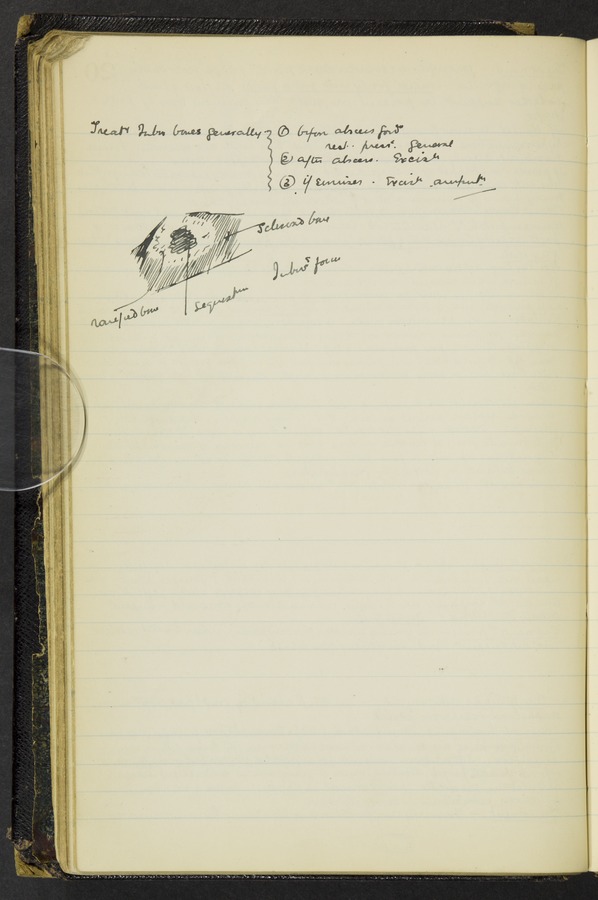 Treatt Tubr bones generally ① before abscess formd
rest. press. General
② after abscess. Excisn
③ if sinuses. Excisn amputn
Sclerosed bone
Tubrs focus
Sequestrum
rarefied bone